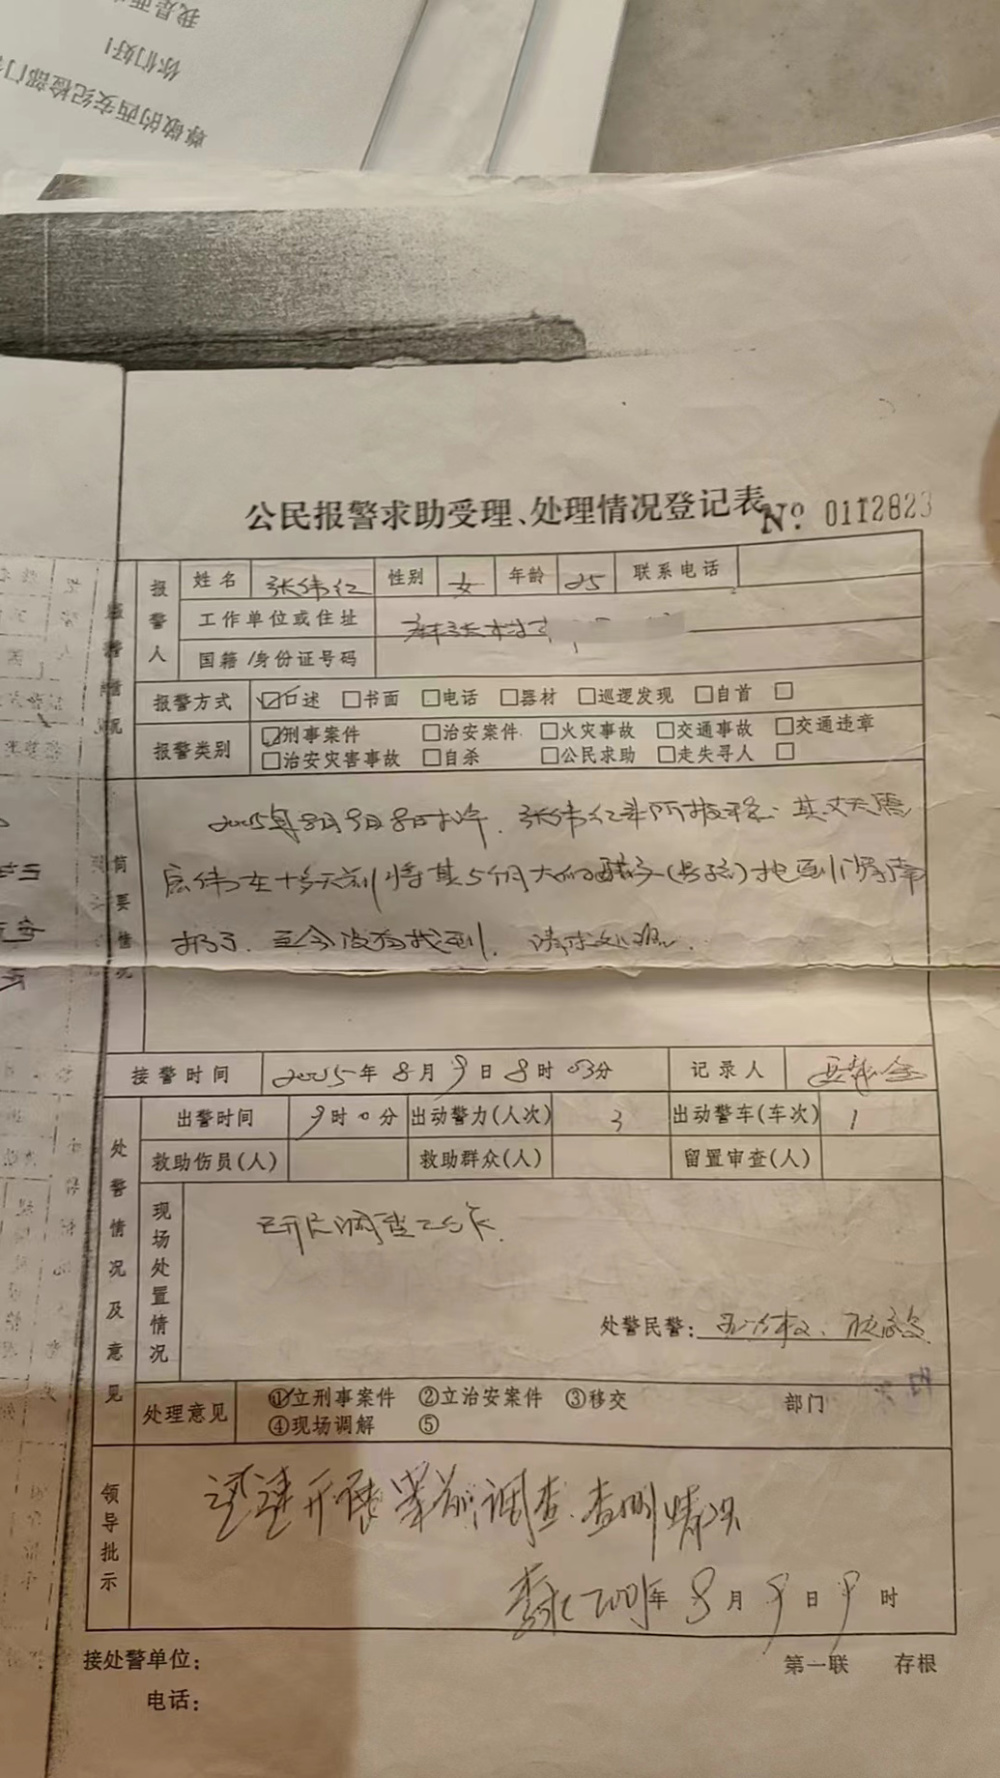 尊敬的西安纪检部门
你们好！
我是西
公民报警求助受理、处理情况登记表 No. 0112823
报警人
姓名 张伟红 性别 女 年龄 25 联系电话
工作单位或住址
国籍/身份证号码
报警方式 ☑口述 □书面 □电话 □器材 □巡逻发现 □自首 □
报警类别 ☑刑事案件 □治安案件 □火灾事故 □交通事故 □交通违章
□治安灾害事故 □自杀 □公民求助 □走失寻人 □
简要情况
2005年8月9日8时许，张伟红来所报称：其丈夫
在十多天前将其5个月大的孩子(男孩)抱到
扔了，至今没有找到，请求处理。
接警时间 2005年8月9日8时03分 记录人
处警情况及意见
出警时间 9时0分 出动警力(人次) 3 出动警车(车次) 1
救助伤员(人) 救助群众(人) 留置审查(人)
现场处置情况
已开展调查工作。
处警民警：
处理意见 ①立刑事案件 ②立治安案件 ③移交 部门
④现场调解 ⑤
领导批示
速开展案前调查，查明情况
2005年8月9日9时
接处警单位：
第一联 存根
电话：